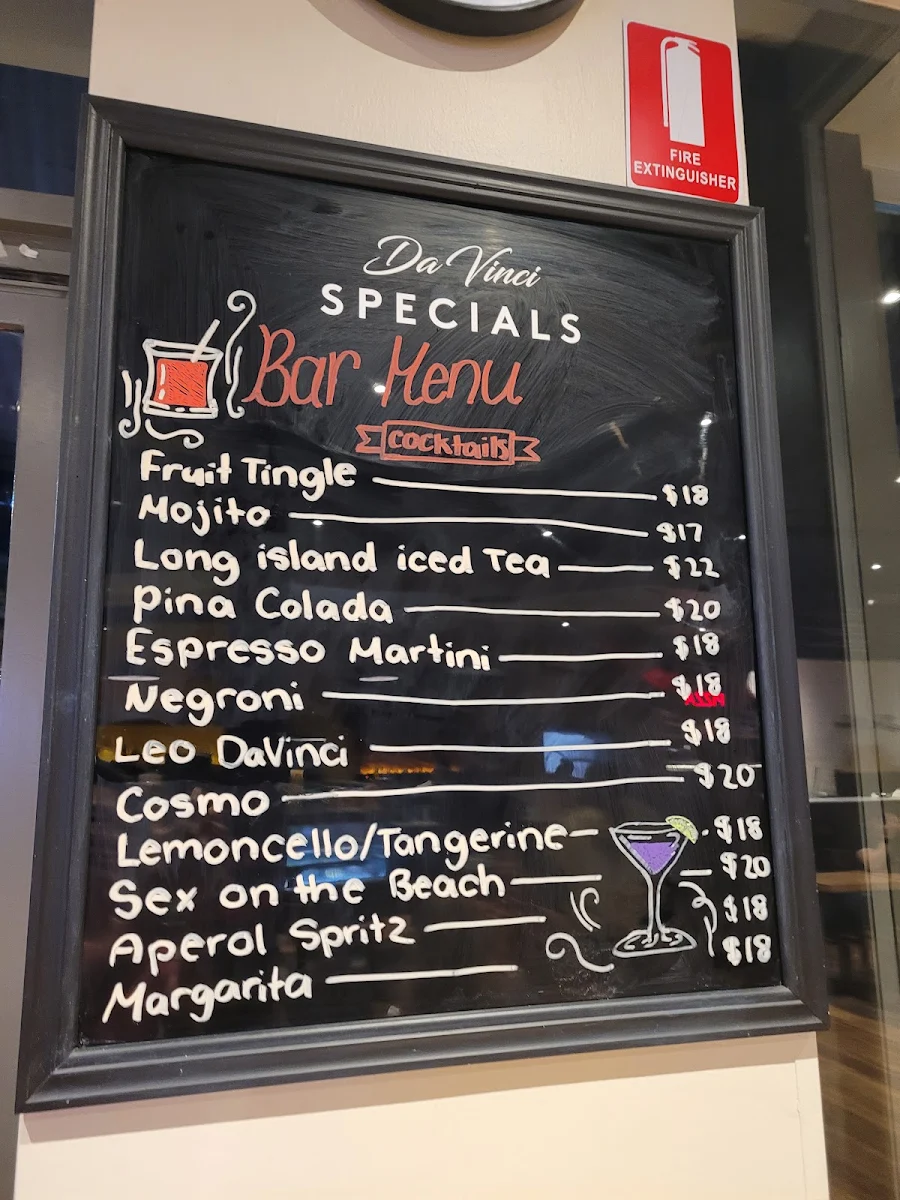 FIRE
EXTINGUISHER
Da Vinci
SPECIALS
Bar Menu
cocktails
Fruit Tingle $18
Mojito $17
Long island iced Tea $22
Pina Colada $20
Espresso Martini $18
Negroni $18
Leo DaVinci $18
Cosmo $20
Lemoncello/Tangerine $18
Sex on the Beach $20
Aperol Spritz $18
Margarita $18